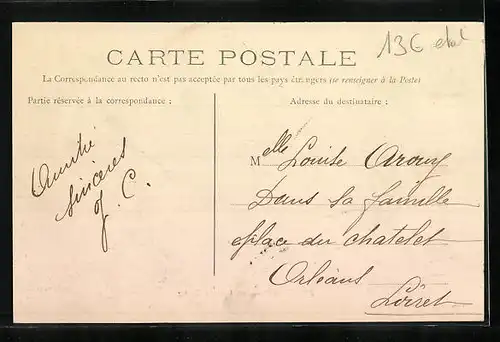 136 etat
CARTE POSTALE
La Correspondance au recto n'est pas acceptée par tous les pays étrangers (se renseigner à la Poste)
Partie réservée à la correspondance :
Adresse du destinataire :
Amitié
sincères
J. C.
Melle Louise Arouy
Dans sa famille
place du chatelet
Orléans
Loiret